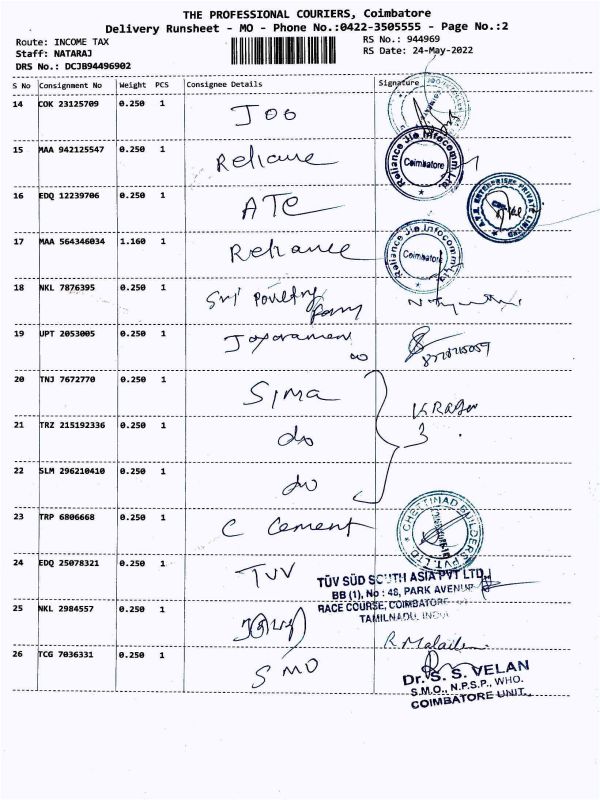 THE PROFESSIONAL COURIERS, Coimbatore
Delivery Runsheet - MO - Phone No.:0422-3505555 - Page No.:2
Route: INCOME TAX
Staff: NATARAJ
DRS No.: DCJB94496902
RS No.: 944969
RS Date: 24-May-2022
S No Consignment No Weight PCS Consignee Details Signature
14 COK 23125709 0.250 1
15 MAA 942125547 0.250 1 Reliance
Reliance Jio Infocomm Ltd. Coimbatore
16 EDQ 12239706 0.250 1 ATC
ENTERPRISES PRIVATE LIMITED
17 MAA 564346034 1.160 1 Reliance
Reliance Jio Infocomm Ltd. Coimbatore
18 NKL 7876395 0.250 1 Sri Poultry
19 UPT 2053005 0.250 1
20 TNJ 7672770 0.250 1 SIMA
21 TRZ 215192336 0.250 1 do
3
22 SLM 296210410 0.250 1 do
23 TRP 6806668 0.250 1 C Cement
CHETTINAD BUILDERS PVT. LTD.
24 EDQ 25078321 0.250 1 TUV
TÜV SÜD SOUTH ASIA PVT LTD.,
BB (1), No : 48, PARK AVENUE
RACE COURSE, COIMBATORE
TAMILNADU, INDIA
25 NKL 2984557 0.250 1
26 TCG 7036331 0.250 1 SMO
Dr. S. S. VELAN
S.M.O., N.P.S.P., WHO.
COIMBATORE UNIT.,